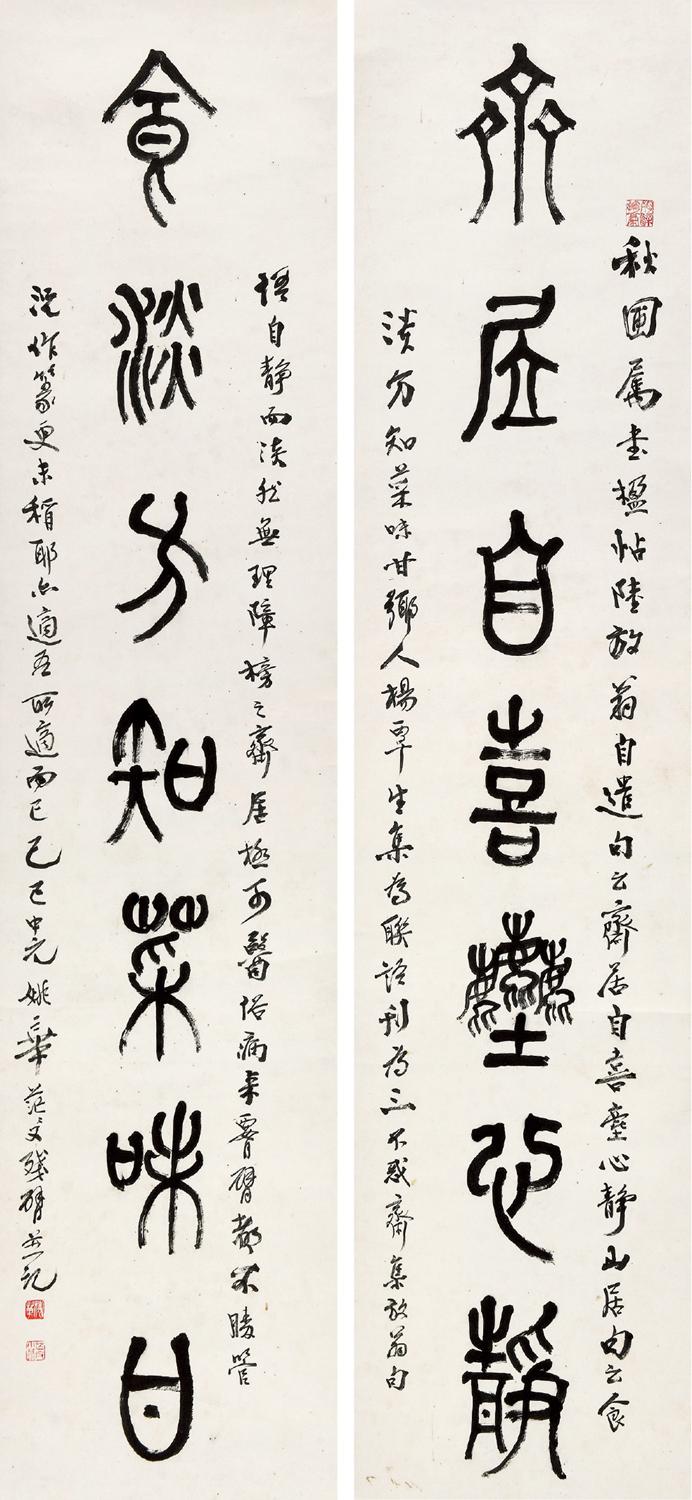 秋圃属書楹帖陸放翁自遣句云齋居自喜塵心静山居句云食
齊居自喜塵心靜
淡方知菜味甘鄉人楊覃生集為聯語刊為三不惑齋集放翁句
悟自静而淡然無理障榜之齋居極可醫俗病來臂都不勝管
食淡方知菜味甘
況作篆更未稱耶亦適吾所適而已己巳中元姚華茫父殘臂並記